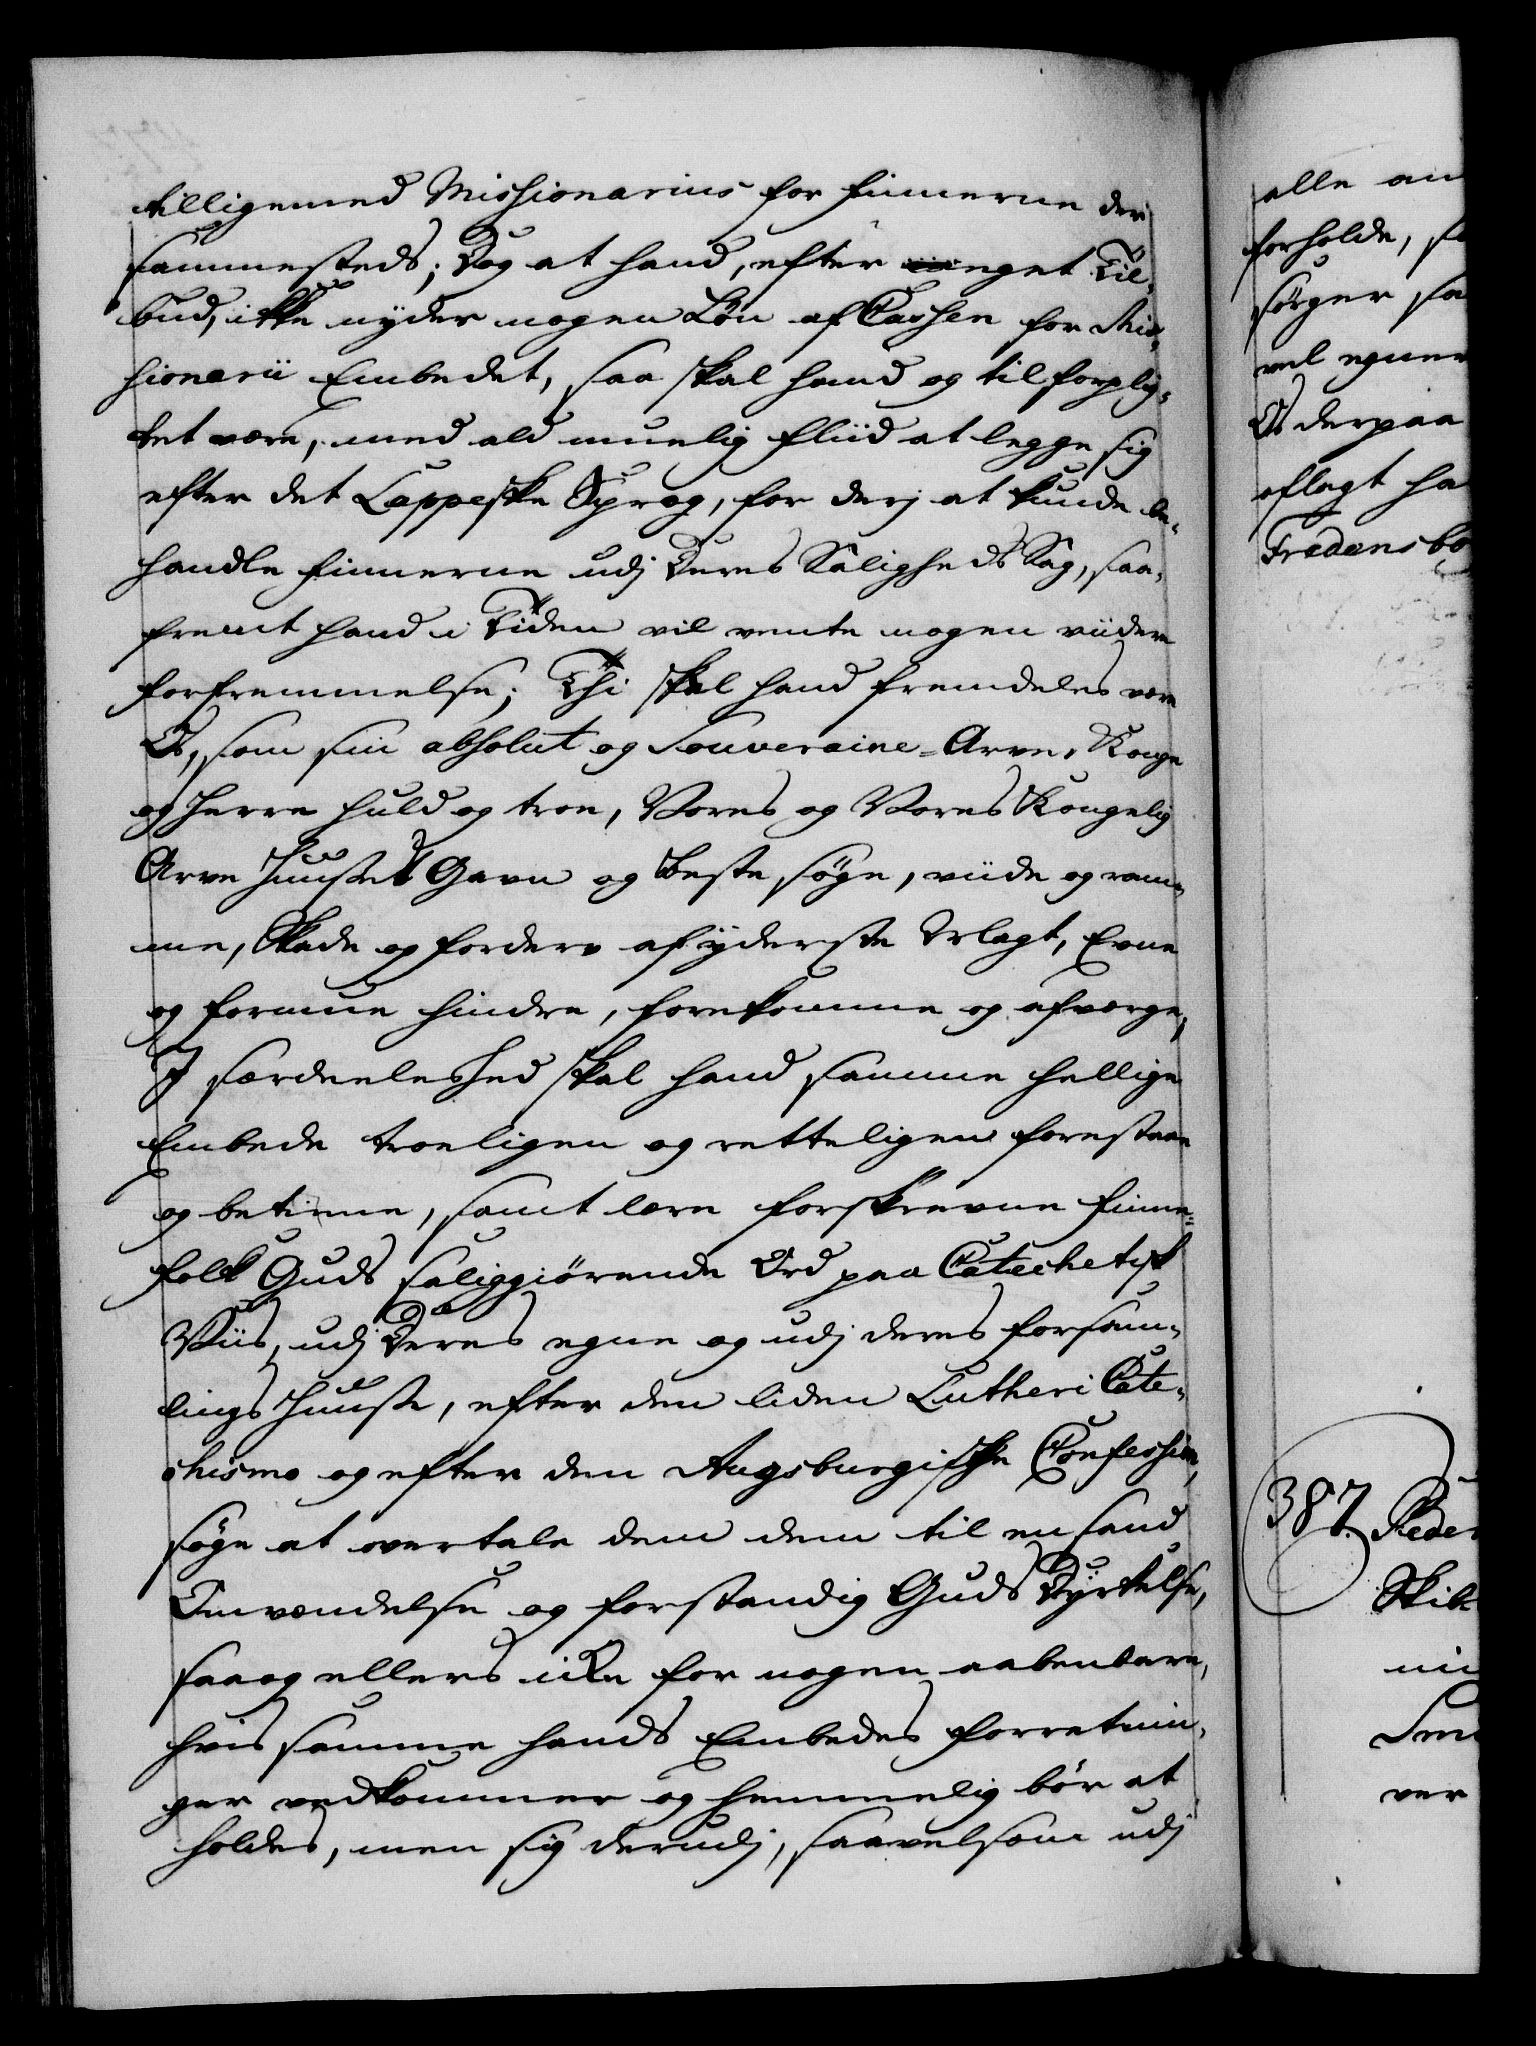 tilligemed Missionarius for Finnerne der
sammesteds; Dog at hand, efter eget Til-
bud, ikke nyder nogen Løn af Cassen for Mis-
sionarii Embedet, saa skal hand og tilforplig-
tet være, med ald muelig Fliid at legge sig
efter det Lappeske Sprog, for derj at kunde be-
handle Finnerne udj Deres Saligheds Sag, saa-
fremt hand i Tiden vil vente nogen viidere
Forfremmelse; Thi skal hand fremdeles være
Os, som sin absolut og Souveraine-Arve-Konge
og Herre huld og troe, Vores og Vores Kongelig
Arve Huuses Gavn og beste søge, viide og ram-
me, Skade og Forderv af yderste Tvlagt, Evne
og Formue hindre, forekomme og afværge;
I særdeeleshed skal hand samme hellige
Embede troeligen og retteligen forestaae
og betiene, samt lære forskrevne Finne-
folk Guds saliggiörende Ord paa Catechetisk
Viis, udj Deres egne og udj deres Forsam-
lings Huuse, efter den liden Lutheri Cate-
chismo og efter den Augsburgiske Confession,
søge at overtale dem dem til en sand
Omvendelse og forstandig Guds Dyrkelse,
saa og ellers icke for nogen aabenbare,
hvis samme hands Embedes Forretnin-
ger vedkommer og hemmelig bör at
holdes, men sig derudj, saavelsom udj
alle an
forholde, s
sørger sa
vel egner
Os derpaa
aflagt ha
Fredensbo
387. Peder
Skib
ni
Sm
ver